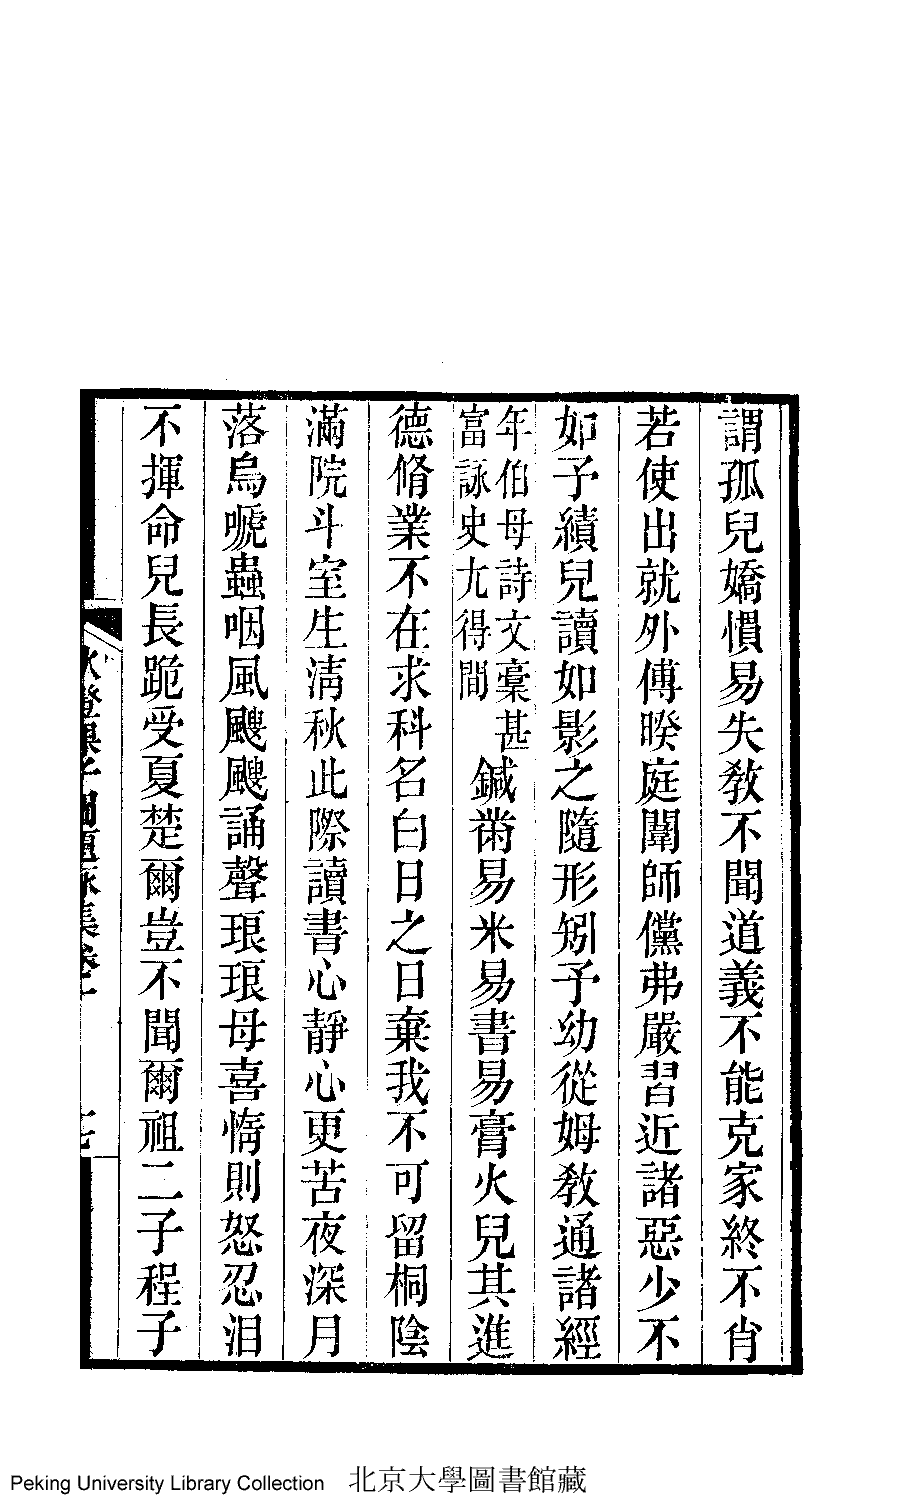 謂孤兒嬌慣易失敎不聞道義不能克家終不肖
若使出就外傅暌庭闈師儻弗嚴習近諸惡少不
如予績兒讀如影之隨形矧予幼從姆敎通諸經
年伯母詩文稾甚
富詠史尢得間
鍼黹易米易書易膏火兒其進
德脩業不在求科名白日之日棄我不可留桐陰
滿院斗室生淸秋此際讀書心靜心更苦夜深月
落烏嗁蟲咽風颼颼誦聲琅琅母喜惰則怒忍泪
不揮命兒長跪受夏楚爾豈不聞爾祖二子程子
秋鐙課子圖題詠集卷
Peking University Library Collection 北京大學圖書館藏